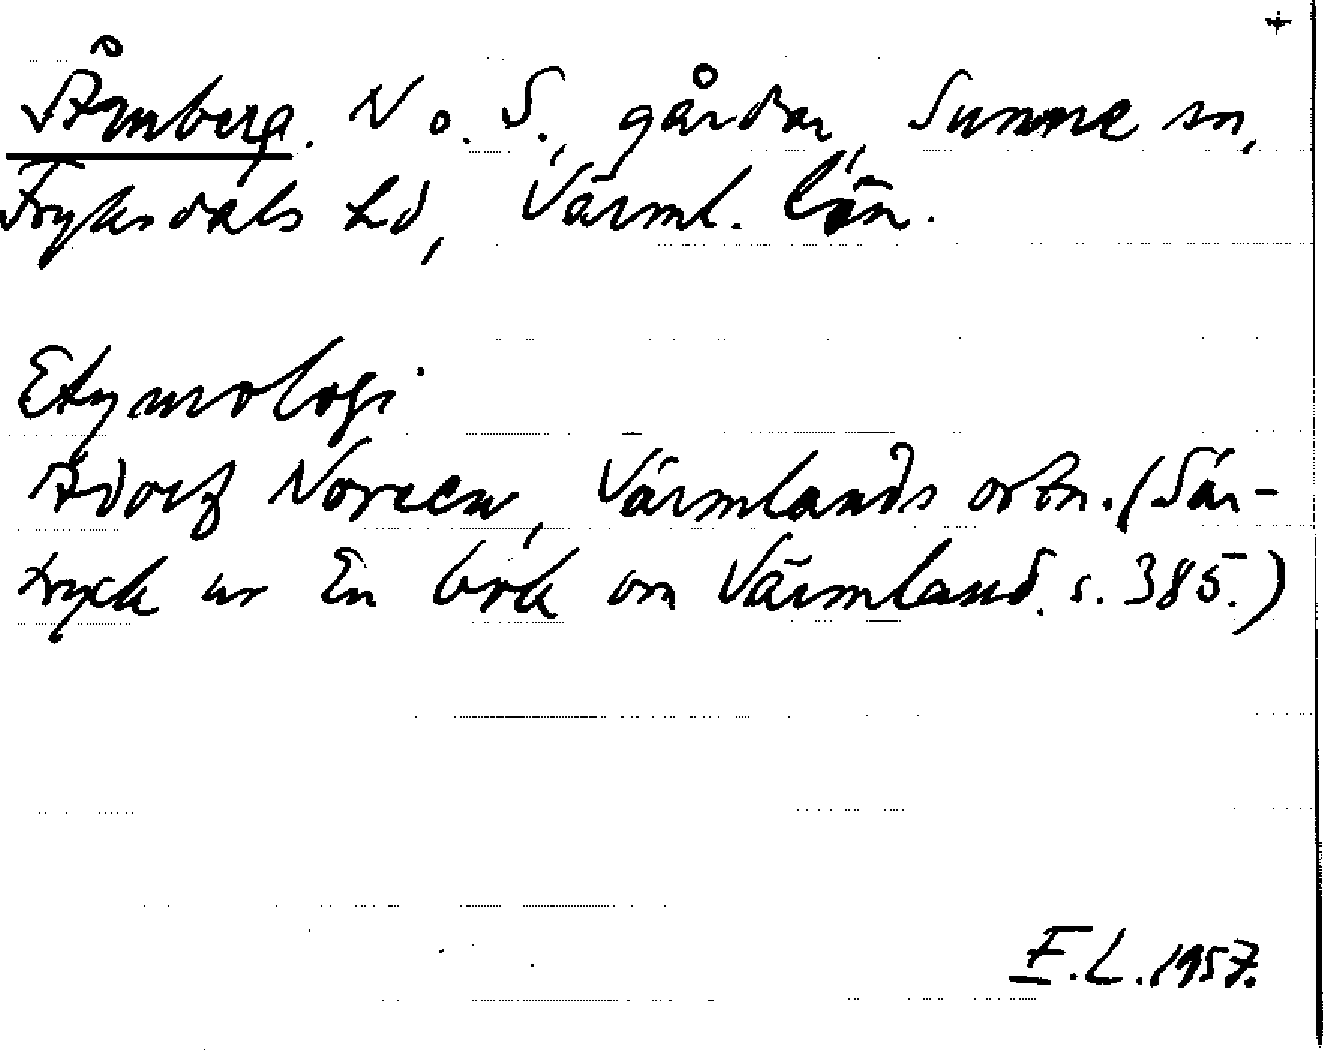 +
Åmberg. N o. S., gårdar, Sunne sn,
Fryksdals hd, Värml. län.
Etymologi
Adolf Noreen, Värmlands ortn. (Sär-
tryck ur En bok om Värmland. s. 385.)
F.L. 1957.